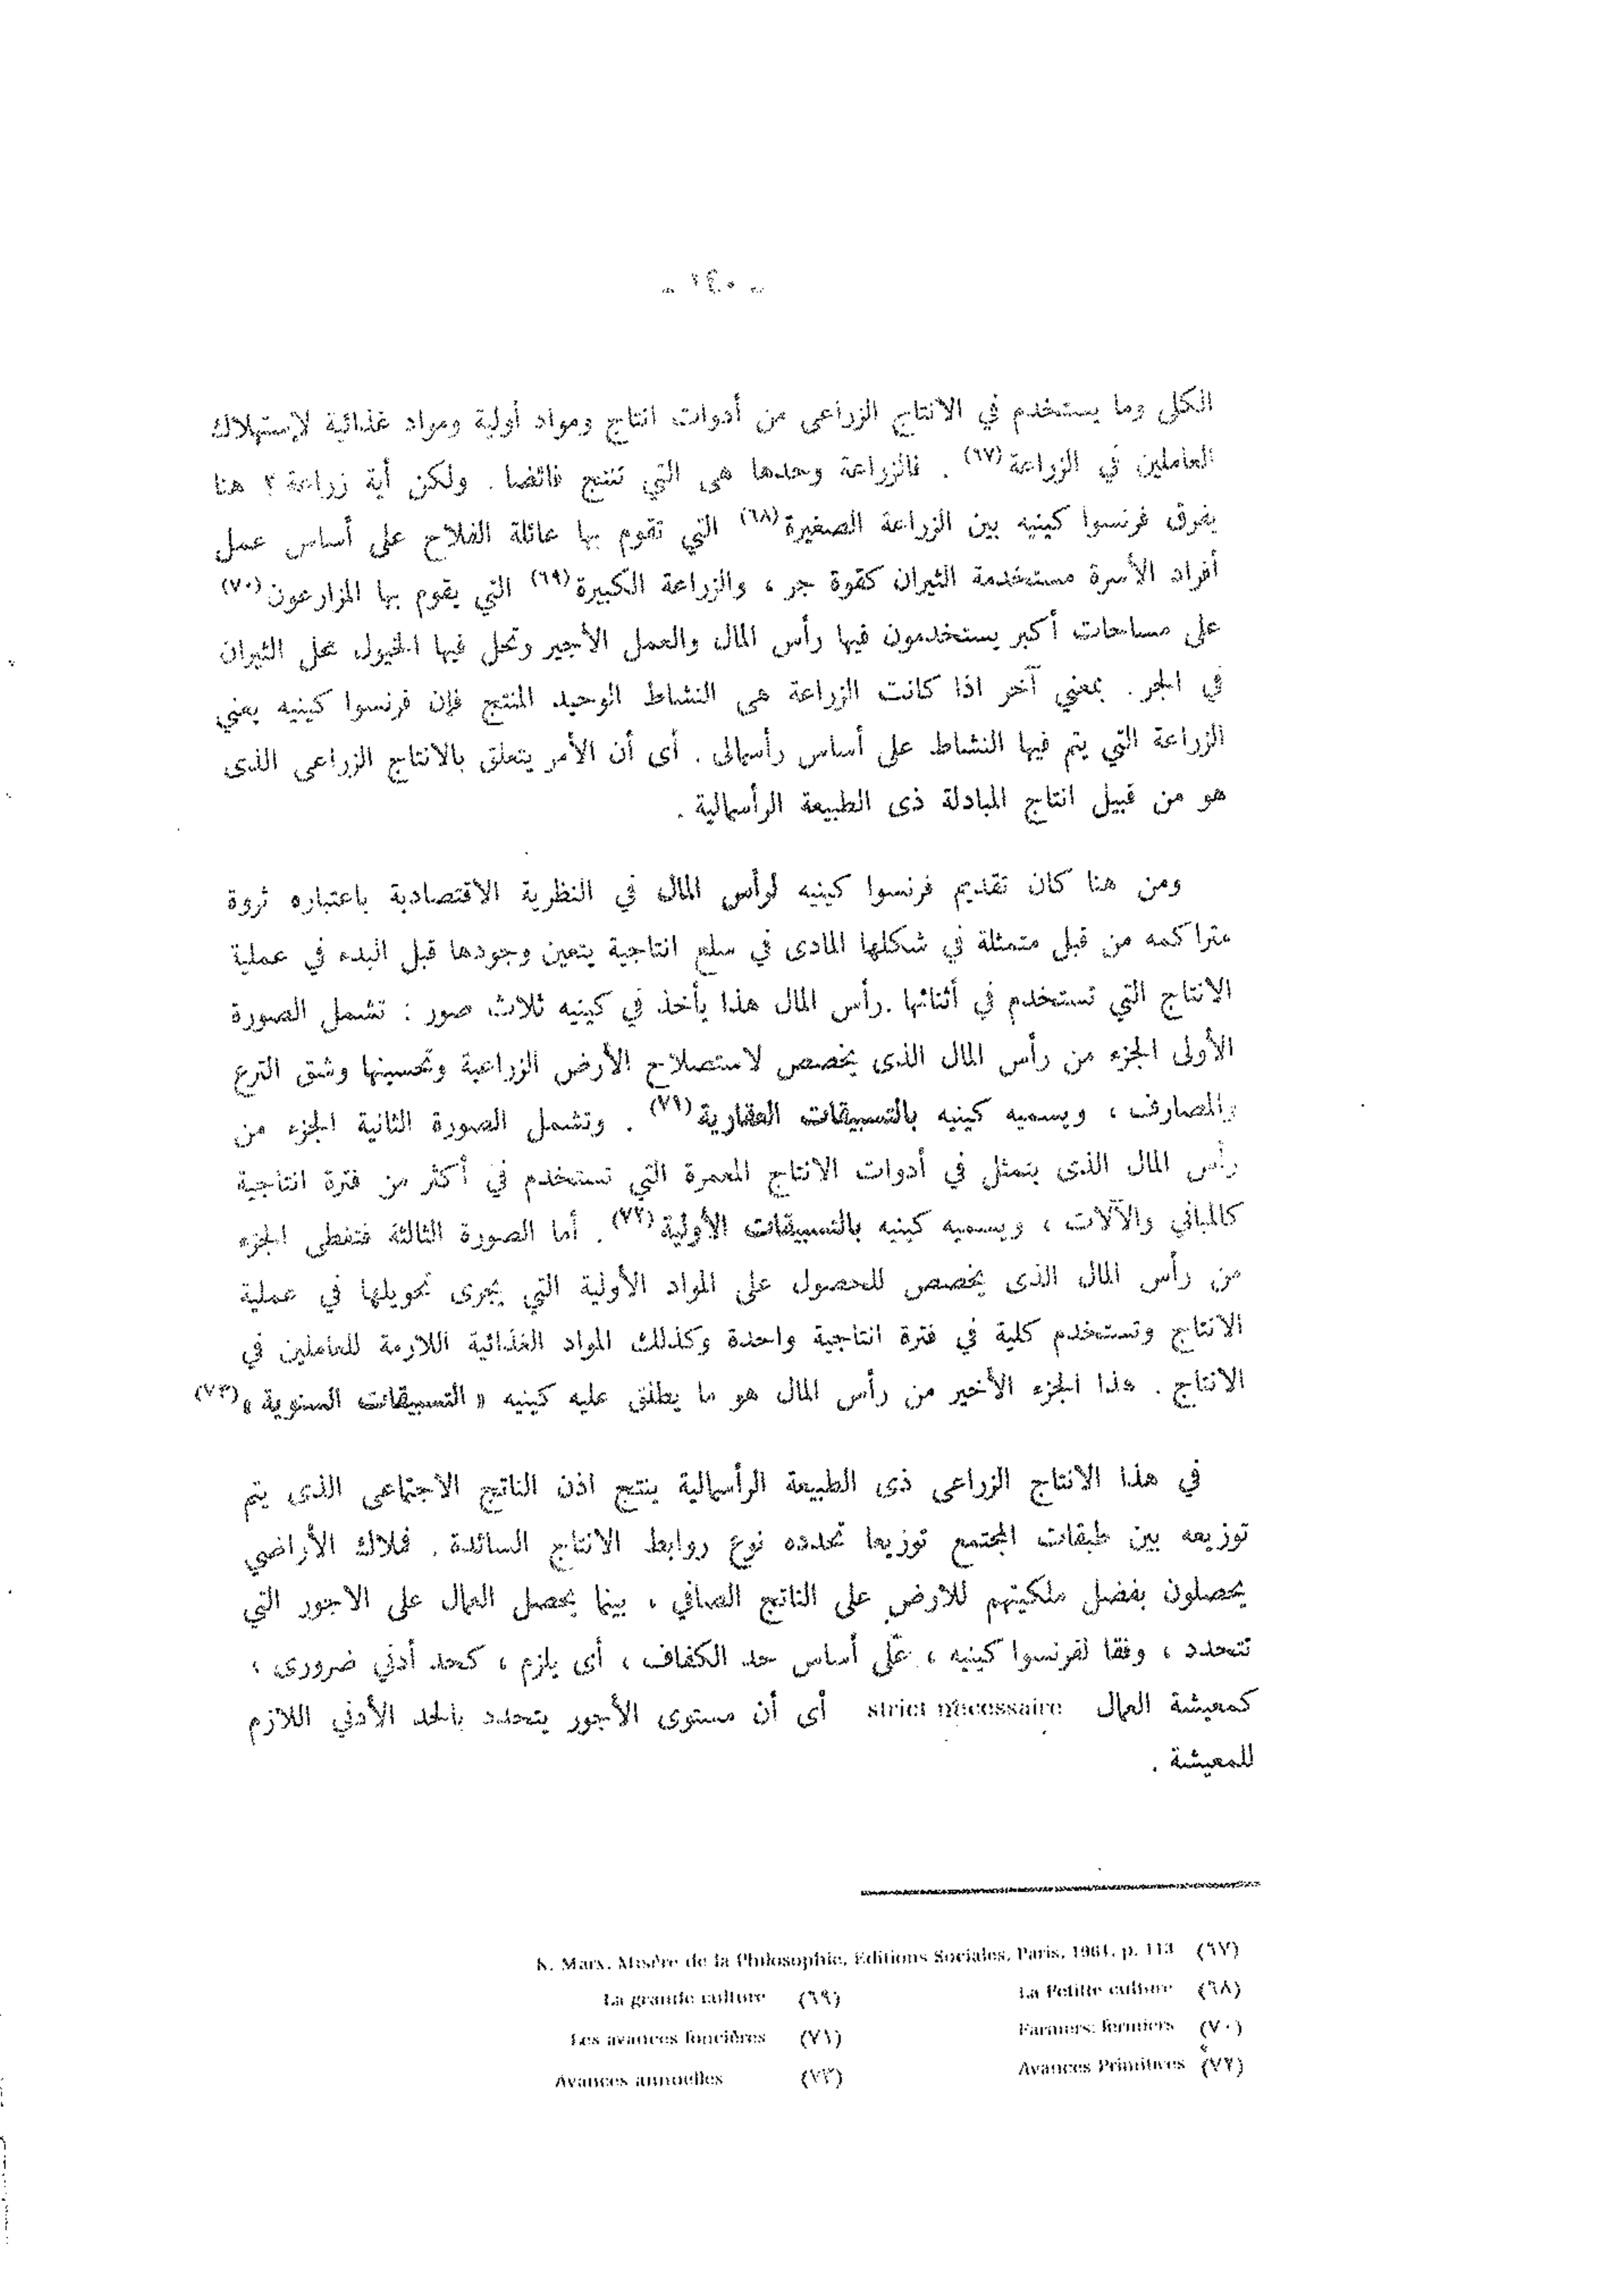 - ١٤٠ -
الكلى وما يستخدم في الانتاج الزراعى من أدوات انتاج ومواد أولية ومواد غذائية لإستهلاك
العاملين في الزراعة(٦٧) . فالزراعة وحدها هى التي تنتج فائضا . ولكن أية زراعة ؟ هنا
يفرق فرنسوا كينيه بين الزراعة الصغيرة(٦٨) التي تقوم بها عائلة الفلاح على أساس عمل
أفراد الأسرة مستخدمة الثيران كقوة جر ، والزراعة الكبيرة(٦٩) التي يقوم بها المزارعون(٧٠)
على مساحات أكبر يستخدمون فيها رأس المال والعمل الأجير وتحل فيها الخيول محل الثيران
في الجر . بمعني آخر اذا كانت الزراعة هى النشاط الوحيد المنتج فإن فرنسوا كينيه يعني
الزراعة التي يتم فيها النشاط على أساس رأسمالى . أى أن الأمر يتعلق بالانتاج الزراعى الذى
هو من قبيل انتاج المبادلة ذى الطبيعة الرأسمالية .
ومن هنا كان تقديم فرنسوا كينيه لرأس المال في النظرية الاقتصادية باعتباره ثروة
متراكمه من قبل متمثلة في شكلها المادى في سلع انتاجية يتعين وجودها قبل البدء في عملية
الانتاج التي تستخدم في أثنائها . رأس المال هذا يأخذ في كينيه ثلاث صور : تشمل الصورة
الأولى الجزء من رأس المال الذى يخصص لاستصلاح الأرض الزراعية وتحسينها وشق الترع
والمصارف ، ويسميه كينيه بالتسبيقات العقارية(٧١) . وتشمل الصورة الثانية الجزء من
رأس المال الذى يتمثل في أدوات الانتاج المعمرة التي تستخدم في أكثر من فترة انتاجية
كالمباني والآلات ، ويسميه كينيه بالتسبيقات الأولية(٧٢) . أما الصورة الثالثة فتغطى الجزء
من رأس المال الذى يخصص للحصول على المواد الأولية التي يجرى تحويلها في عملية
الانتاج وتستخدم كلية في فترة انتاجية واحدة وكذلك المواد الغذائية اللازمة للعاملين في
الانتاج . هذا الجزء الأخير من رأس المال هو ما يطلق عليه كينيه « التسبيقات السنوية »(٧٣)
في هذا الانتاج الزراعى ذى الطبيعة الرأسمالية ينتج اذن الناتج الاجتماعى الذى يتم
توزيعه بين طبقات المجتمع توزيعا تحدده نوع روابط الانتاج السائدة . فملاك الأراضي
يحصلون بفضل ملكيتهم للارض على الناتج الصافي ، بينما يحصل العمال على الاجور التي
تتحدد ، وفقا لفرنسوا كينيه ، على أساس حد الكفاف ، أى يلزم ، كحد أدني ضرورى ،
كمعيشة العمال strict nécessaire أى أن مستوى الأجور يتحدد بالحد الأدني اللازم
للمعيشة .
(٦٧) K. Marx, Misère de la Philosophie, Editions Sociales, Paris, 1961, p. 113
(٦٨) La Petite culture (٦٩) La grande culture
(٧٠) Farmers: fermiers (٧١) Les avances foncières
(٧٢) Avances Primitives (٧٣) Avances annuelles